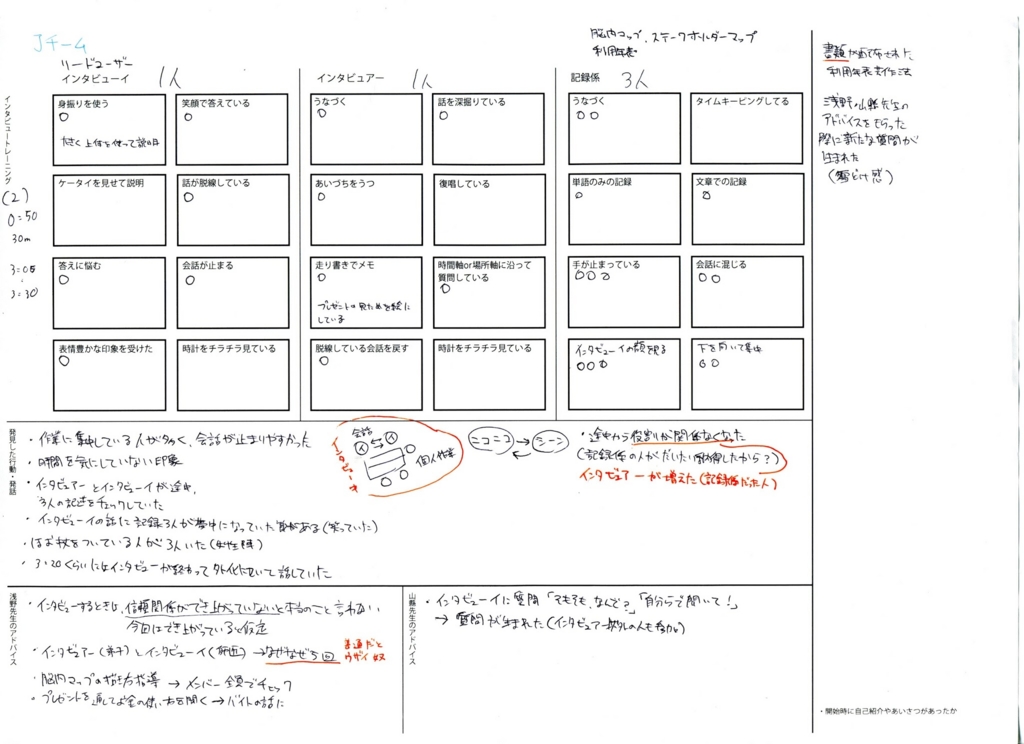 Jチーム
脳内マップ、ステークホルダーマップ
利用年表
リードユーザー
インタビューイ 1人
インタビュアー 1人
記録係 3人
書類が配布された
利用年表作法
浅野、山縣先生の
アドバイスをもらった
際に新たな質問が
生まれた
(雪どけ感)
インタビュートレーニング
(2)
30m
3=05
3=30
身振りを使う
○
大きく上体を使って説明
笑顔で答えている
○
ケータイを見せて説明
話が脱線している
○
答えに悩む
○
会話が止まる
○
表情豊かな印象を受けた
○
時計をチラチラ見ている
うなづく
○
話を深掘りている
○
あいづちをうつ
○
復唱している
走り書きでメモ
○
プレゼントの見ためを絵に
している
時間軸or場所軸に沿って
質問している
○
脱線している会話を戻す
○
時計をチラチラ見ている
うなづく
○○
タイムキーピングしてる
単語のみの記録
○
文章での記録
○
手が止まっている
○○○
会話に混じる
○○
インタビューイの顔を見る
○○○
下を向いて集中
○○
発見した行動・発話
・作業に集中している人が多く、会話が止まりやすかった
・時間を気にしていない印象
・インタビュアーとインタビューイが途中、
3人の記述をチェックしていた
・インタビューイの話に記録3人が夢中になっていた事がある(笑っていた)
・ほお杖をついている人が3人いた(女性陣)
・3:20くらいにはインタビューが終わって
話していた
会話
個人作業
ニコニコ → シーン
・途中から役割が関係なくなった
インタビュアーが増えた(記録係だった人)
浅野先生のアドバイス
・インタビューするときは、信頼関係ができ上がっていないと本当のこと言わない
今回はでき上がっていると仮定
・インタビュアー(弟子)とインタビューイ(師匠)→なぜなぜ5回
普通だと
ウザイ奴
・脳内マップの描き方指導 → メンバー全員でチェック
・プレゼントを通してお金の使い方を聞く→バイトの話に
山縣先生のアドバイス
・インタビューイに質問「でもでも、なんで?」「自分らで聞いて!」
→ 質問が生まれた(インタビュアー以外の人も参加)
・開始時に自己紹介やあいさつがあったか